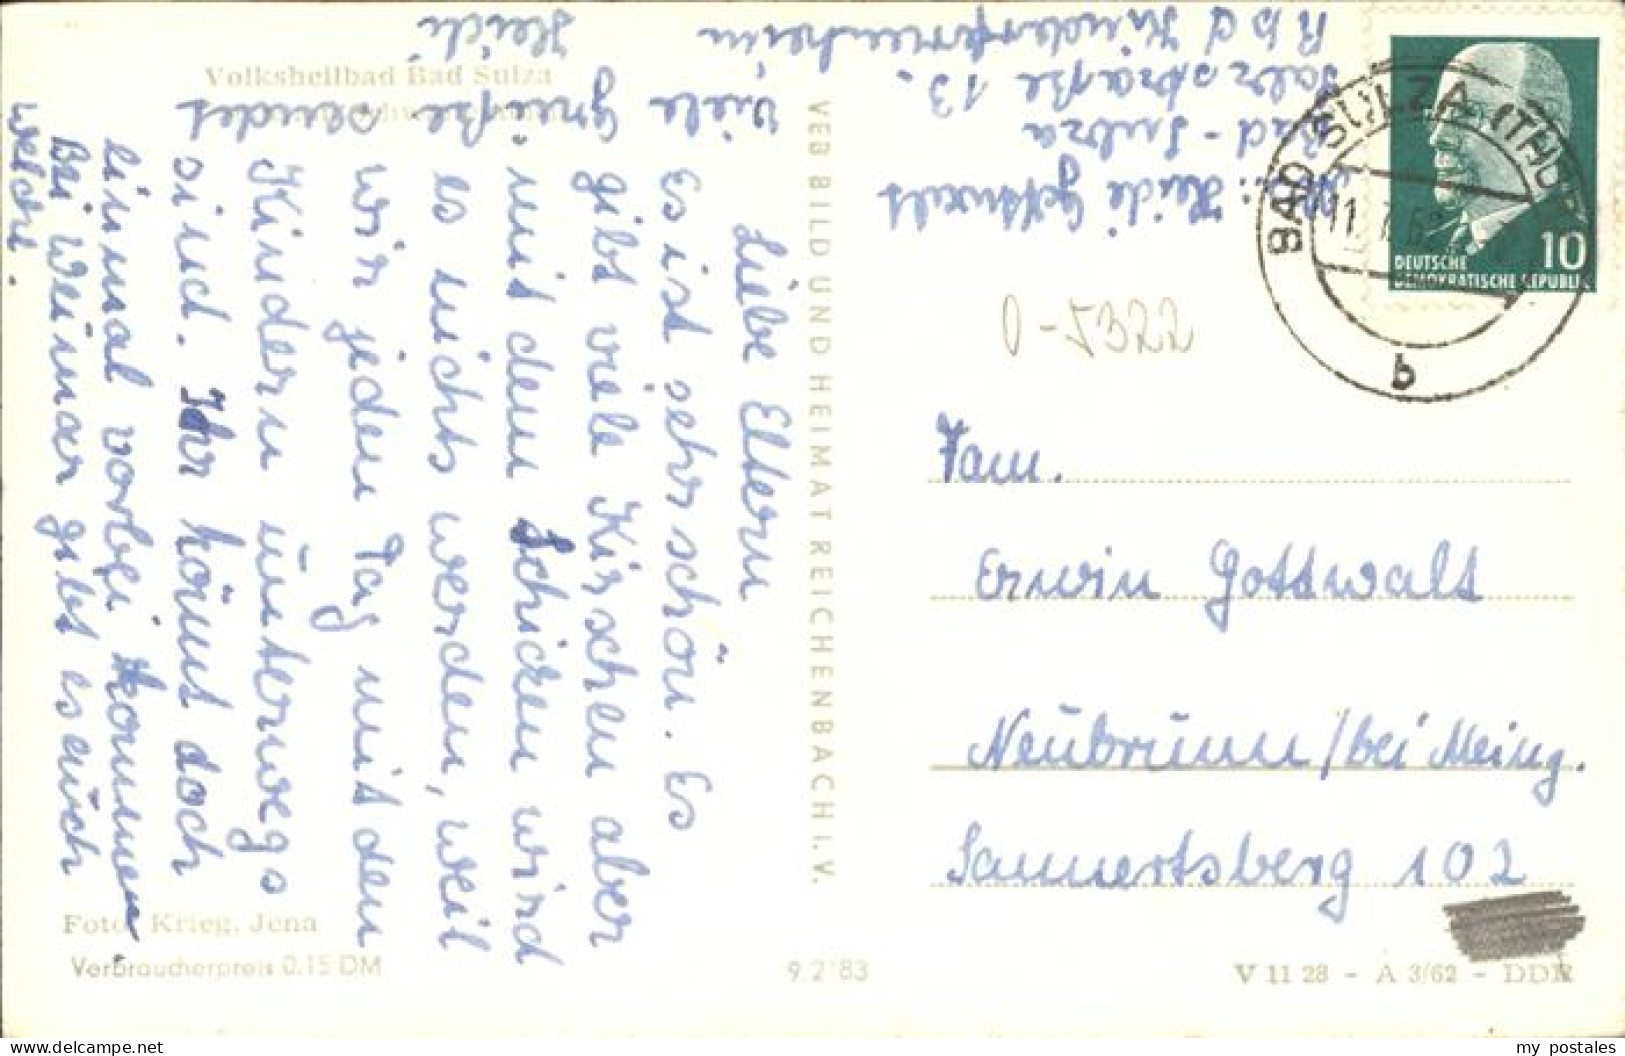 Volksheilbad Bad Sulza
Liebe Eltern
Es ist sehr schön. Es
gibt viele Kirschen aber
mit dem Schicken wird
es nichts werden, weil
wir jeden Tag mit den
Kindern únterwegs
sind. Ihr könnt doch
einmal vorbei kommen.
Bei Weimar gibt es eúch
welche.
Viele Grüße sendet
Heidi
Foto: Krieg, Jena
Verbraucherpreis 0.15 DM
VEB BILD UND HEIMAT REICHENBACH I. V.
9/2*83
V 11 28 - A 3/62 - DDR
Abs.: Heidi Gottwalt
Bad-Sulza
Salzstraße 13.
Rbd Kinderferienheim
BAD SULZA (THÜR)
11.7.62
b
10
DEUTSCHE
DEMOKRATISCHE REPUBLIK
0-5322
Fam.
Erwin Gottwalt
Neúbrúnn/bei Meing.
Sannertsberg 102
my_postales